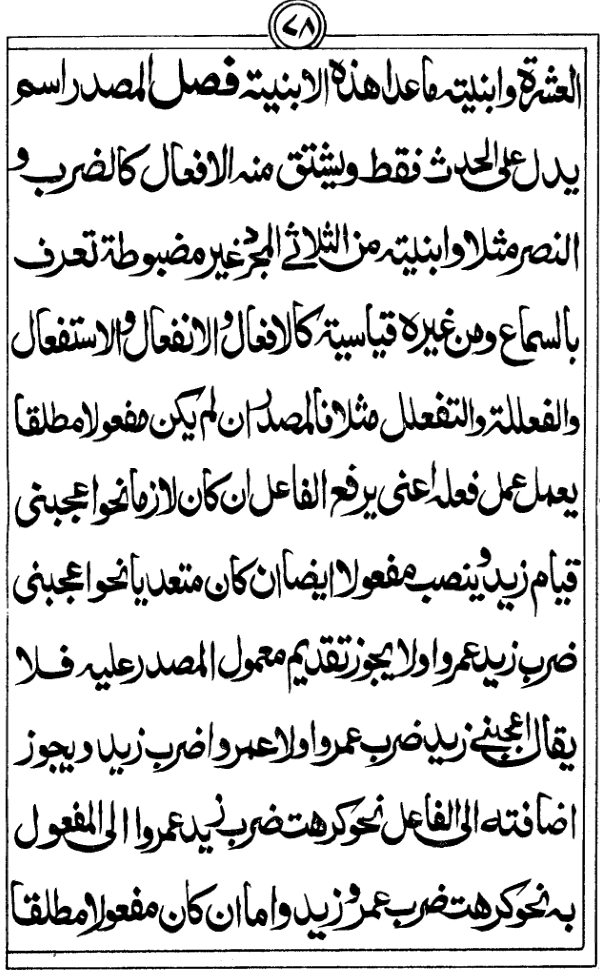 ٧٨
العشرة وابنيته ماعدا هذه الابنية فصل المصدر اسم
يدل على الحدث فقط ويشتق منه الافعال كالضرب و
النصر مثلا وابنيته من الثلاثي المجرد غير مضبوطة تعرف
بالسماع ومن غيره قياسية كالافعال والانفعال والاستفعال
والفعللة والتفعلل مثلا فالمصدر ان لم يكن مفعولا مطلقا
يعمل عمل فعله اعنى يرفع الفاعل ان كان لازما نحو اعجبنى
قيام زيد وينصب مفعولا ايضا ان كان متعديا نحو اعجبنى
ضرب زيد عمروا ولا يجوز تقديم معمول المصدر عليه فلا
يقال اعجبنى زيد ضرب عمروا ولا عمروا ضرب زيد ويجوز
اضافته الى الفاعل نحو كرهت ضرب زيد عمروا الى المفعول
به نحو كرهت ضرب عمرو زيد واما ان كان مفعولا مطلقا